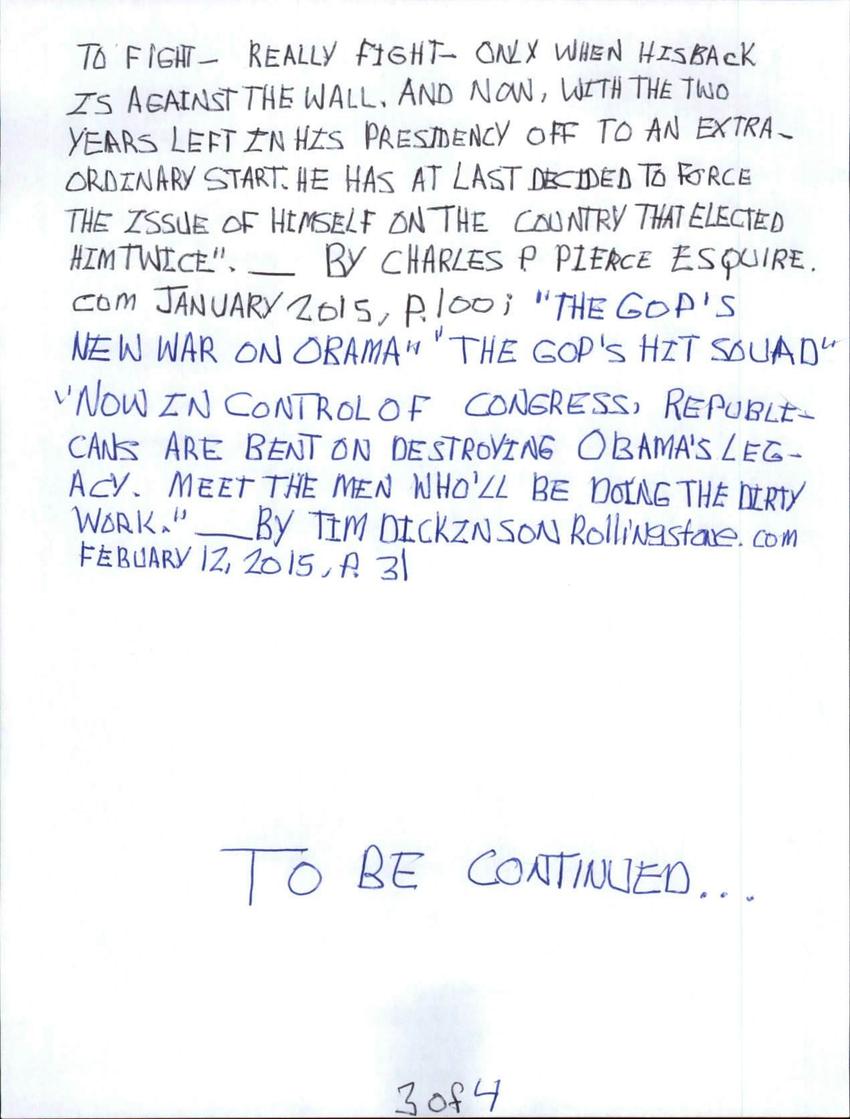 TO FIGHT— REALLY FIGHT— ONLY WHEN HIS BACK
IS AGAINST THE WALL. AND NOW, WITH THE TWO
YEARS LEFT IN HIS PRESIDENCY OFF TO AN EXTRA-
ORDINARY START. HE HAS AT LAST DECIDED TO FORCE
THE ISSUE OF HIMSELF ON THE COUNTRY THAT ELECTED
HIM TWICE". __ BY CHARLES P PIERCE ESQUIRE.
COM JANUARY 2015, P.100; "THE GOP'S
NEW WAR ON OBAMA" "THE GOP'S HIT SQUAD"
"NOW IN CONTROL OF CONGRESS, REPUBLI-
CANS ARE BENT ON DESTROYING OBAMA'S LEG-
ACY. MEET THE MEN WHO'LL BE DOING THE DIRTY
WORK." __ BY TIM DICKINSON Rollingstone.com
FEBUARY 12, 2015, P. 31
TO BE CONTINUED...
3 of 4